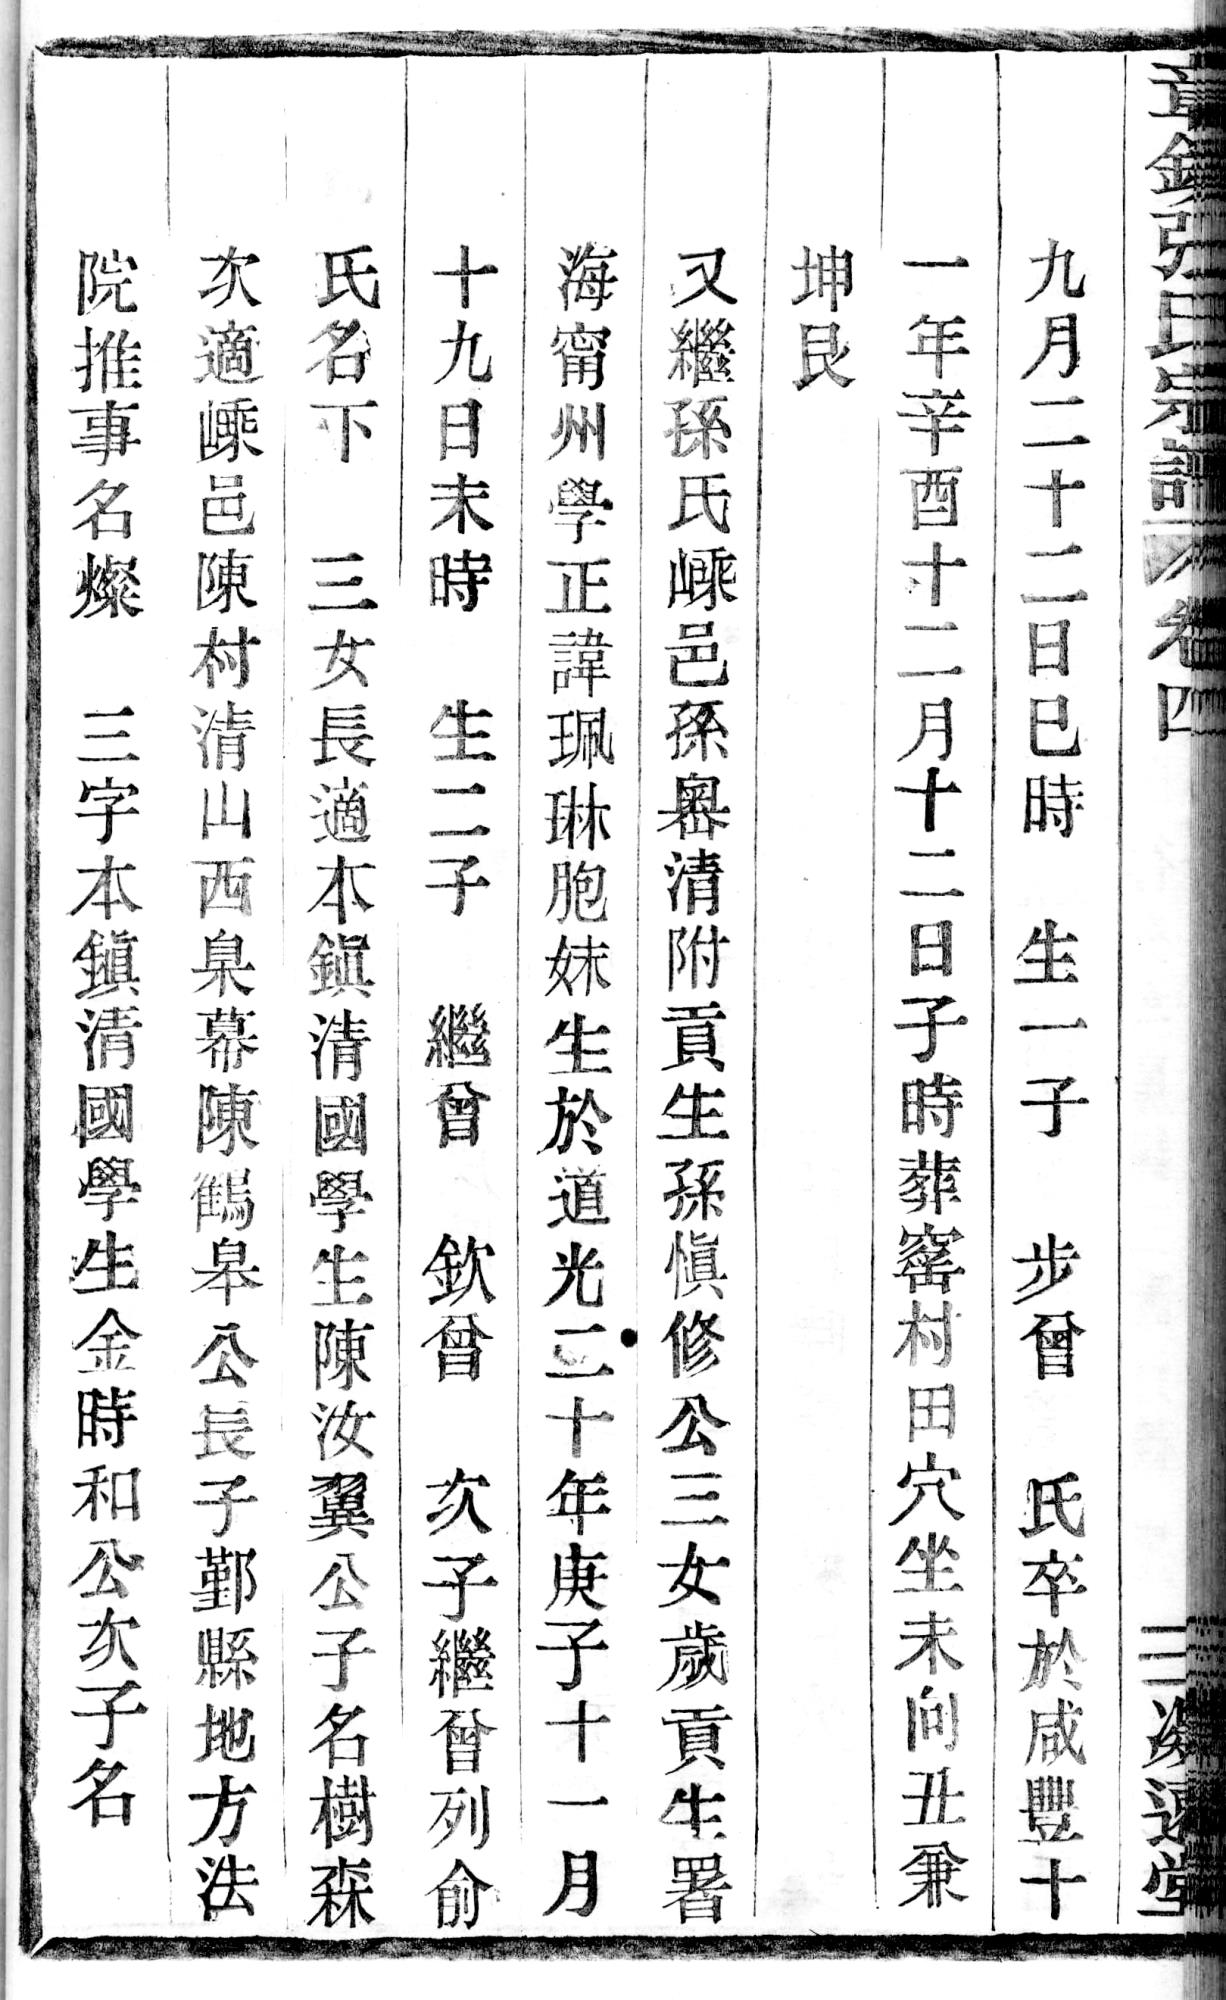 章鎮張氏宗譜 卷四
九月二十二日巳時 生一子 步曾 氏卒於咸豐十
一年辛酉十二月十二日子時葬窰村田穴坐未向丑兼
坤艮
又繼孫氏嵊邑孫嶴清附貢生孫愼修公三女歲貢生署
海甯州學正諱珮琳胞妹生於道光二十年庚子十一月
十九日未時 生二子 繼曾 欽曾 次子繼曾列俞
氏名下 三女長適本鎭清國學生陳汝翼公子名樹森
次適嵊邑陳村清山西臬幕陳鶴皋公長子鄞縣地方法
院推事名燦 三字本鎭清國學生金時和公次子名